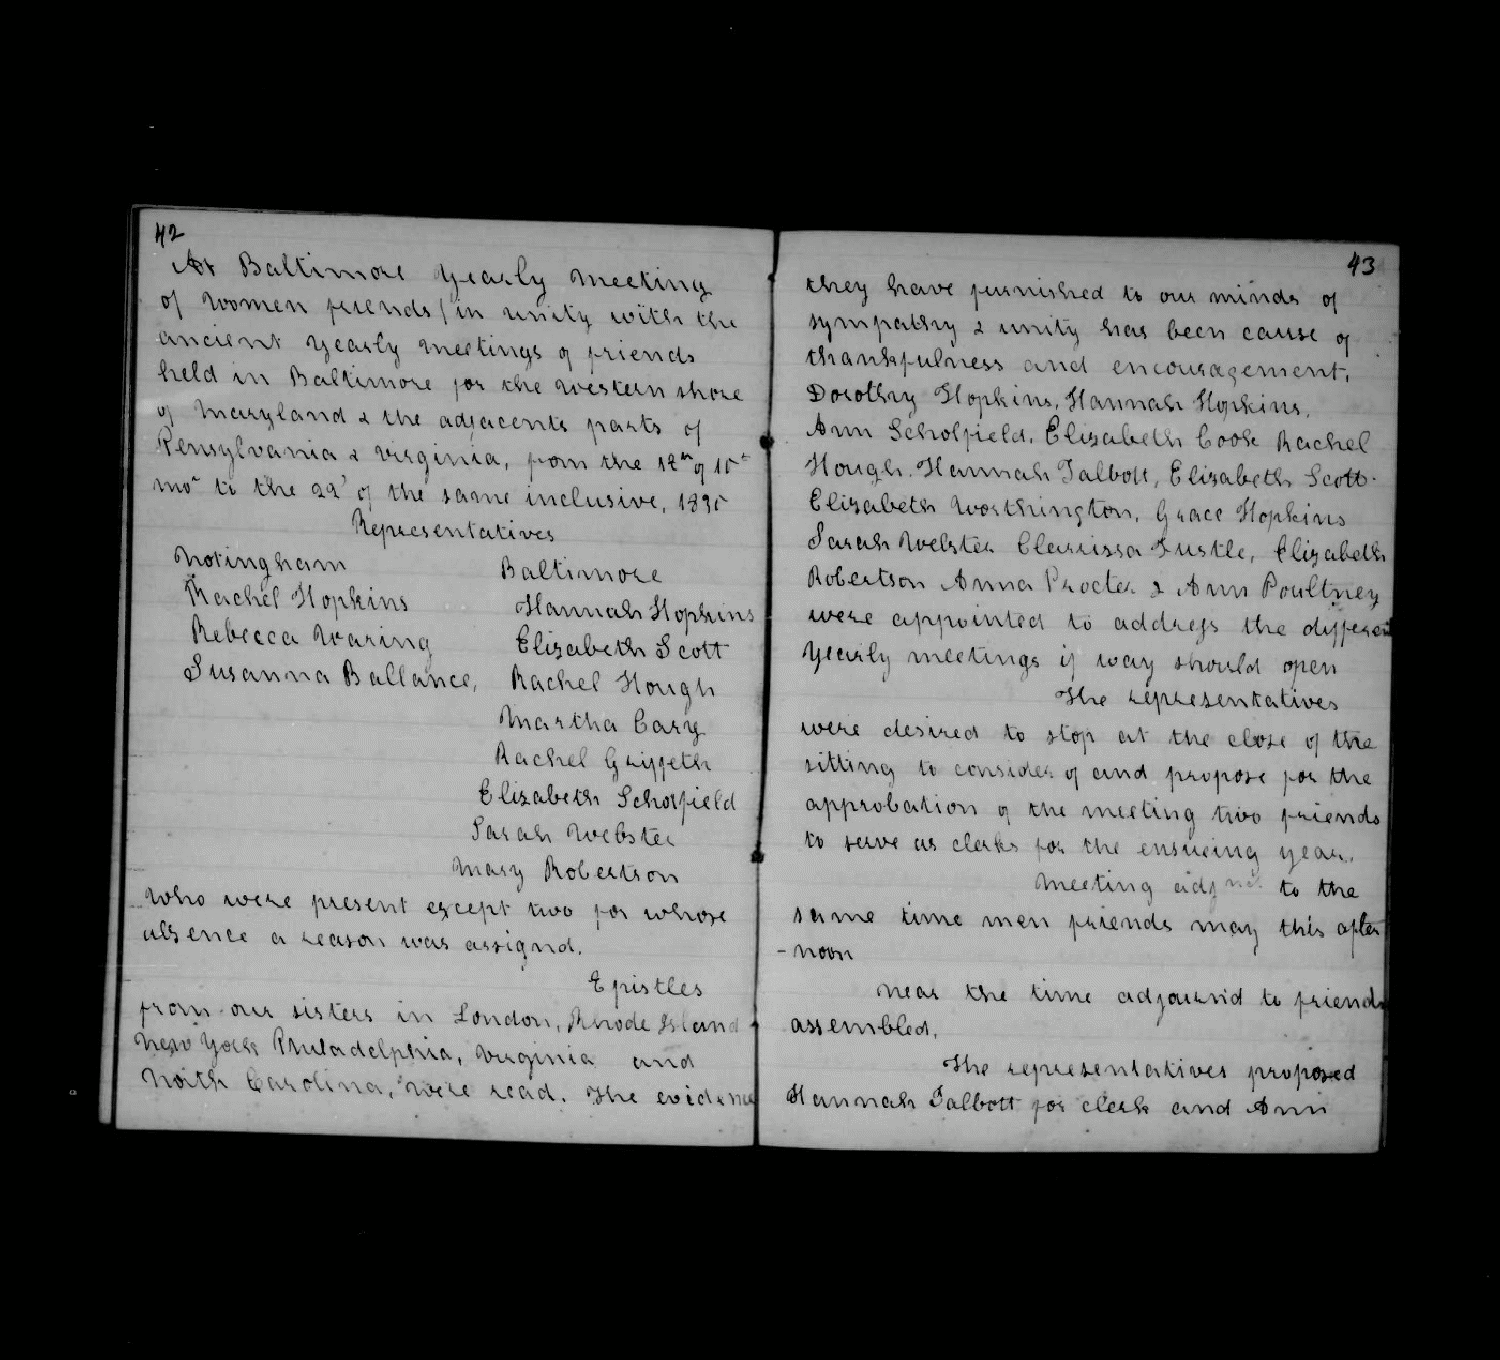 42
At Baltimore Yearly Meeting
of Women friends / in unity with the
ancient Yearly Meetings of friends
held in Baltimore for the western shore
of Maryland & the adjacents parts of
Pensylvania & Virginia, from the 18th of 10th
mo to the 22d of the same inclusive, 1835
Representatives
Notingham
Rachel Hopkins
Rebecca Waring
Susanna Ballance,
Baltimore
Hannah Hopkins
Elizabeth Scott
Rachel Hough
Martha Cary
Rachel Griffeth
Elizabeth Scholfield
Sarah Webster
Mary Robertson
Who were present except two for whose
absence a reason was assignd.
Epistles
from our sisters in London, Rhode Island
New York Philadelphia, Virginia and
North Carolina, were read. The evidence
43
they have furnished to our minds of
sympathy & unity has been cause of
thankfulness and encouragement,
Dorothy Hopkins, Hannah Hopkins,
Ann Scholfield, Elizabeth Cook Rachel
Hough. Hannah Talbott, Elizabeth Scott.
Elizabeth Worthington, Grace Hopkins
Sarah Webster Clarissa Tustle, Elizabeth
Robertson Anna Procter & Ann Poultney
were appointed to address the different
Yearly meetings if way should open
The representatives
were desired to stop at the close of the
sitting to consider of and propose for the
approbation of the meeting two friends
to serve as clerks for the ensueing year.
Meeting adjnd to the
same time men friends may this after
-noon
Near the time adjournd to friends
assembled,
The representatives proposed
Hannah Talbott for clerk and Ann